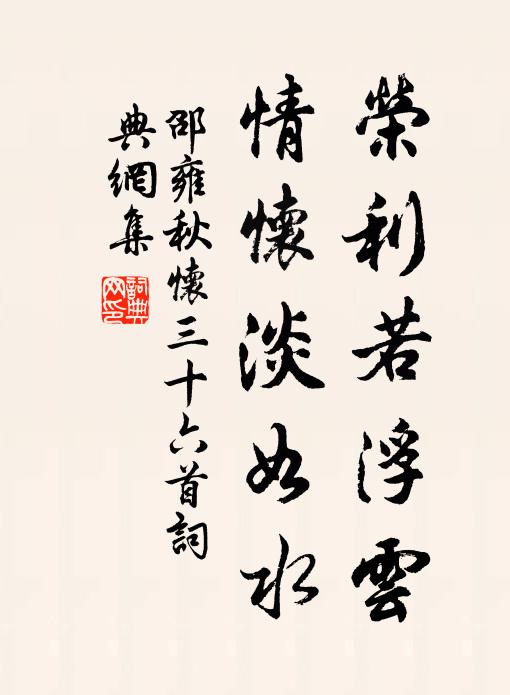 榮利若浮雲
情懷淡如水
邵雍秋懷三十六首詞
典網集
詞典網印